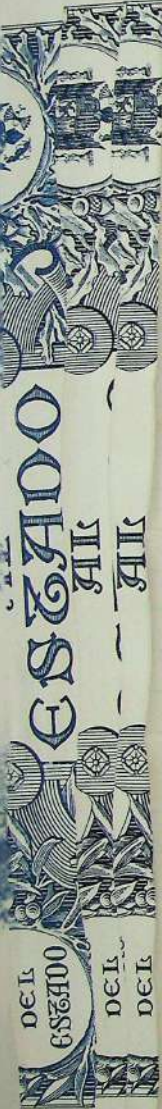 ESTADO
AL
AL
DEL
ESTADO
DEL
DEL